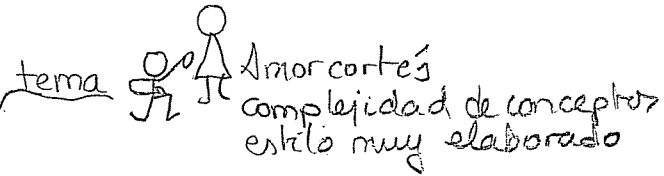 tema
Amor cortés
complejidad de conceptos
estilo muy elaborado